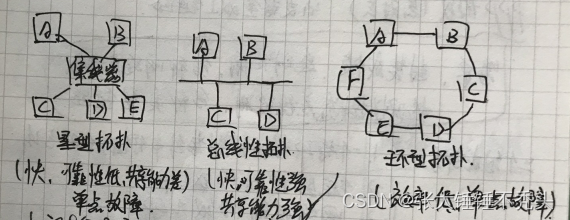 A
B
集线器
C
D
E
星型拓扑
(快，可靠性低，共享能力差)
单点故障
A
B
C
D
总线性拓扑
(快，可靠性强
共享能力强)
A
B
F
C
E
D
环型拓扑
单点故障)